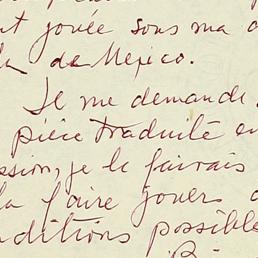 nt jouée sous ma
de Mexico.
Je me demande
pièce traduite en
ssion, je le ferais
la faire jouer
nditions possible